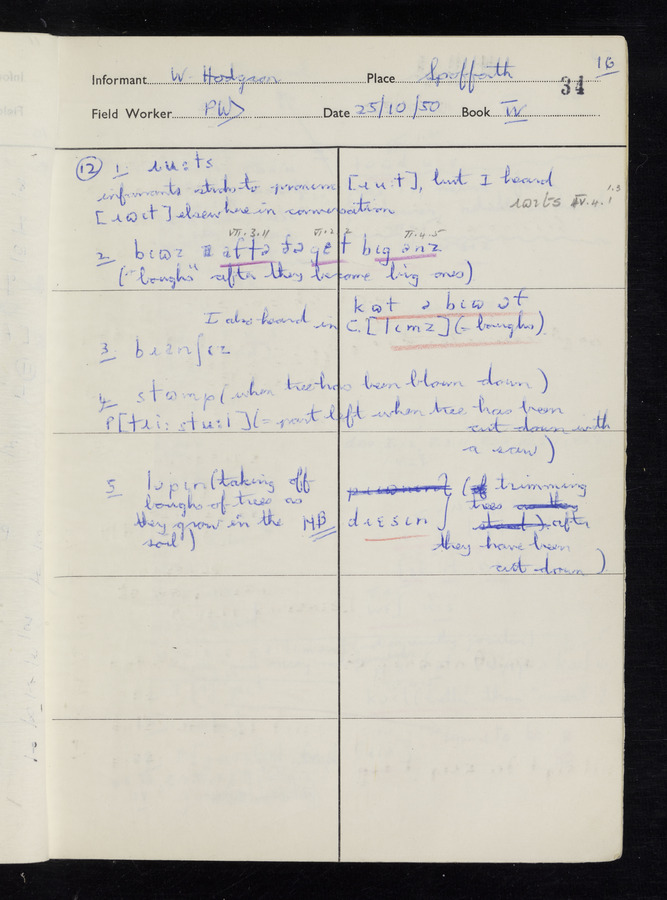 16
Informant W. Hodgson Place Spofforth 34
Field Worker PWD Date 25/10/50 Book IV
⑫ 1. ɹuːts
informants stick to pronunc [ɹuːt], but I heard
[ɹɷɪt] elsewhere in conversation
ɹɷɪts IV.4.1
VII.3.11
2. bɪəz aftə get bɪg ənz
("boughs" after they become big ones)
kɷt ə bɪə ət
I also heard in C. [lɪmz] (= boughs)
3
4. stɷmp (when tree has been blown down)
P[tɹiː stuːl] (= part left when tree has been
cut down with
a saw)
5 lɒpɪn (taking off
boughs of trees as
they grow in the
soil)
NB dɹɛsɪn (trimming
trees
after
they have been
cut down)